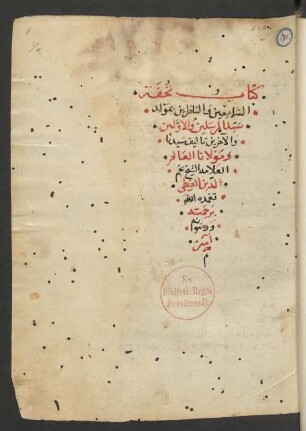 كتاب تحفة
السامعين والناظرين بمولد
سيد المرسلين والاولين
والآخرين تاليف سيدنا
ومولانا العالم
العلامة الشيخ نجم
الدين الغيطي
تغمده الله
برحمته
ورضوانه
آمين
م
Ex
Biblioth. Regia
Berolinensi.